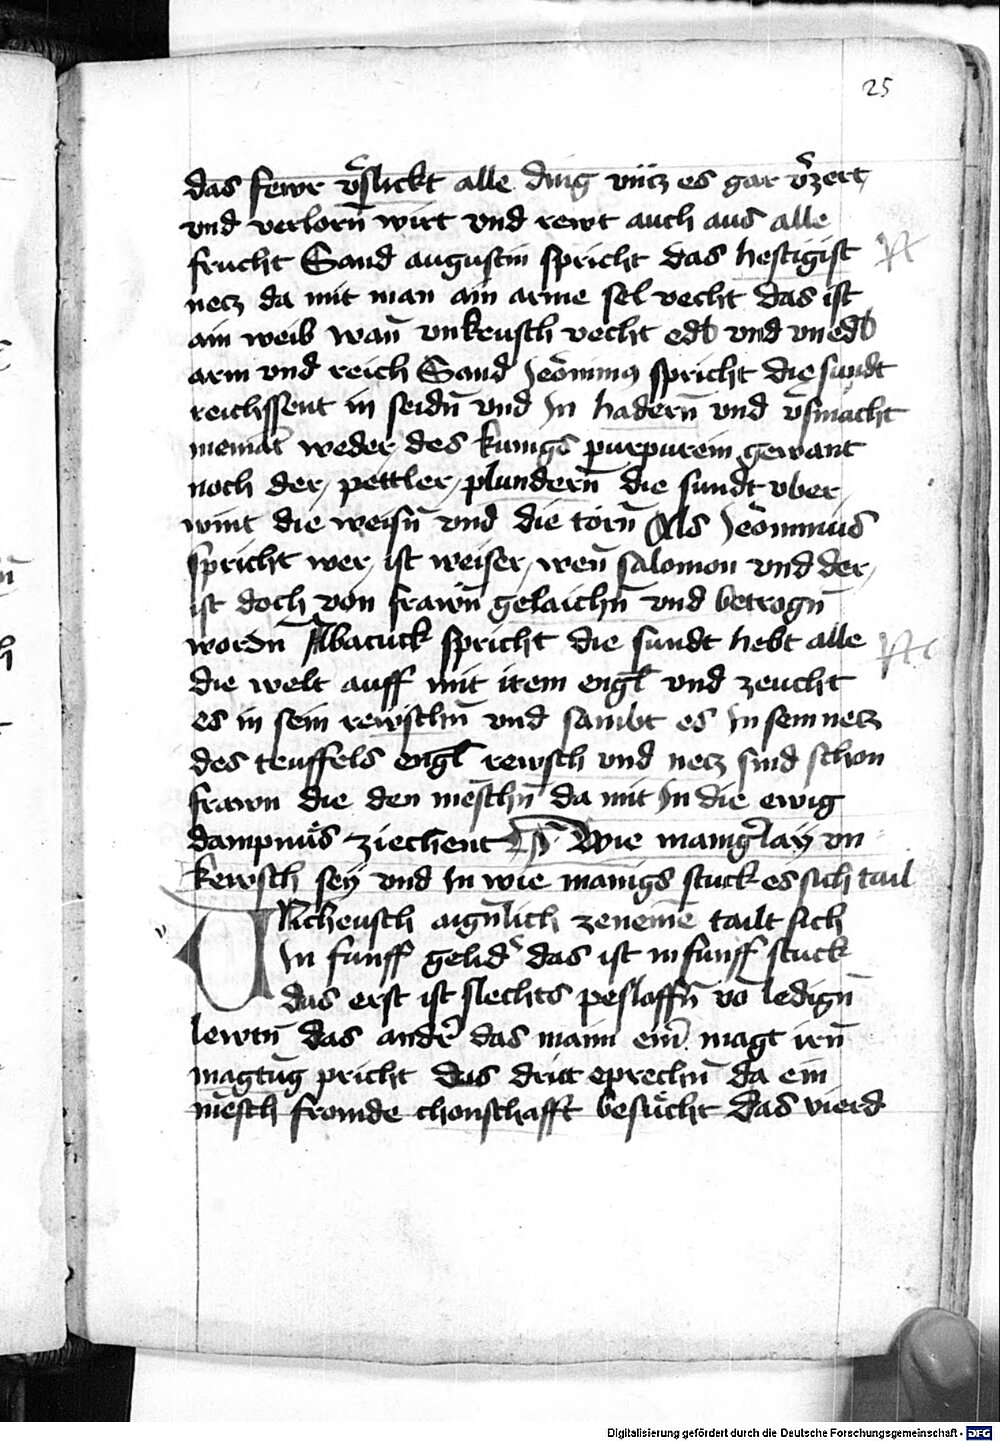 25
das fewr v̾slickt alle ding vntz es gar v̾zert
vnd verlorn̄ wirt vnd rewt auch aus alle
frucht Sand augustin spricht das hestigist
necz da mit man ain arme sel vecht das ist
ain weib wan̄ vnkeusch vecht edl vnd vnedl
arm vnd reich Sand Jeronim9 spricht die sundt
reichssent in seidn̄ vnd in hadern̄ vnd v̾smächt
niemät̾ weder des kunigs purpurein gewant
noch der pettler plundern̄ die sundt vber
wint die weisn̄ vnd die torn̄ Als Jeronimus
spricht wer ist weiser wen̄ salomon vnd der
ist doch von frawn̄ gelaichn̄ vnd betrogn̄
wordn̄ Abacuck spricht die sundt hebt alle
die welt auff mit irem engl vnd zeucht
es in sein rewschn̄ vnd sambt es in sein necz
des teuffels engl rewsch vnd necz sind schon
frawn die den mēschn̄ da mit in die ewig
dampnuͤs ziechent Wie manig̾lay vn
kewsch sey vnd in wie manigs stuck es sich tail
Vnkeusch aign̄lich zenenne tailt sich
in funff gelid̾ das ist in funff stuck
das erst ist slechts peslaffn̄ vō ledign̄
lewtn̄ das andr̾ das mann ein̾ magt irn̄
magtūg pricht das dritt eprechn̄ da ein
mēsch fromde chonschafft besuͤcht das vierd
Digitalisierung gefördert durch die Deutsche Forschungsgemeinschaft - DFG